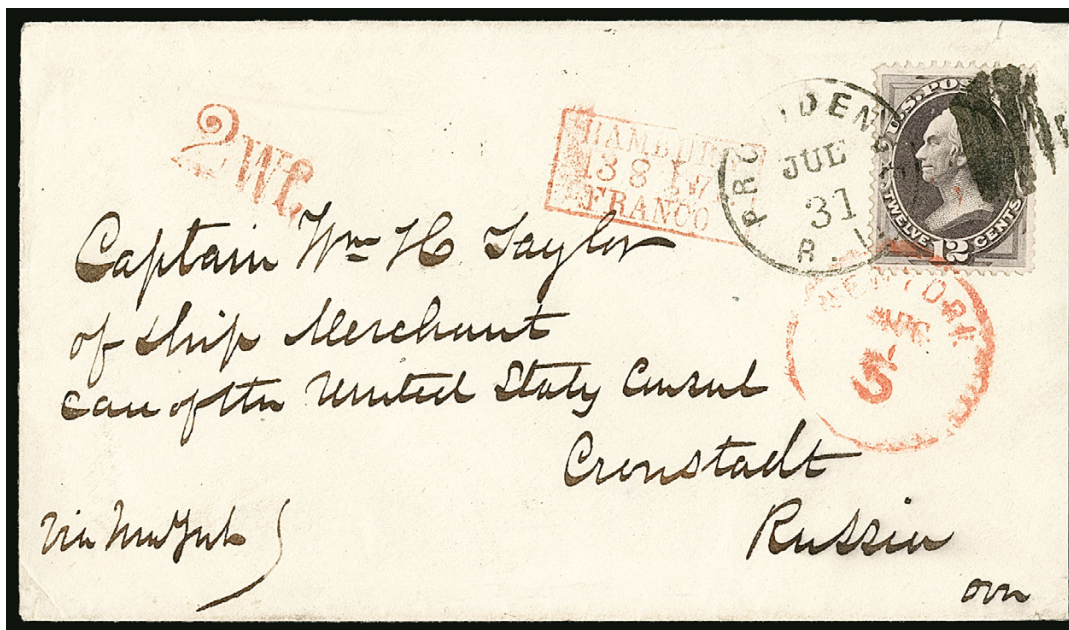 2 Wf.
HAMBUR
13 8 7
FRANCO
PROVIDEN
JUL
31
R. I.
U.S. POS
TWELVE 12 CENTS
NEW YORK
5
Captain Wm H Taylor
of ship Merchant
care of the United States Consul
Cronstadt
Russia
via New York